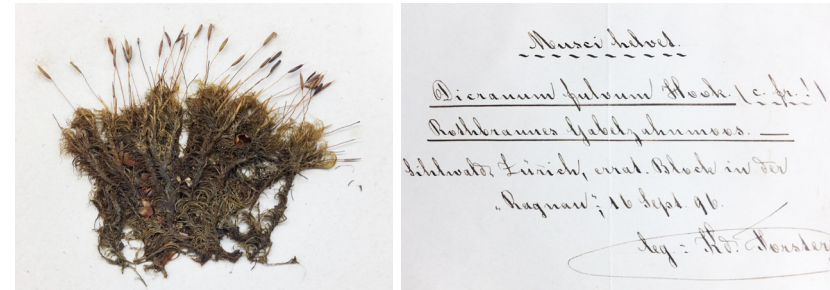 Musci helvet.
Dicranum fulvum Hook. (c. fr.!)
Rothbraunes Gabelzahnmoos. —
Sihlwald, Zürich, errat. Block in der
„Ragnau“, 16 Sept. 96.
leg: Kd. Forster